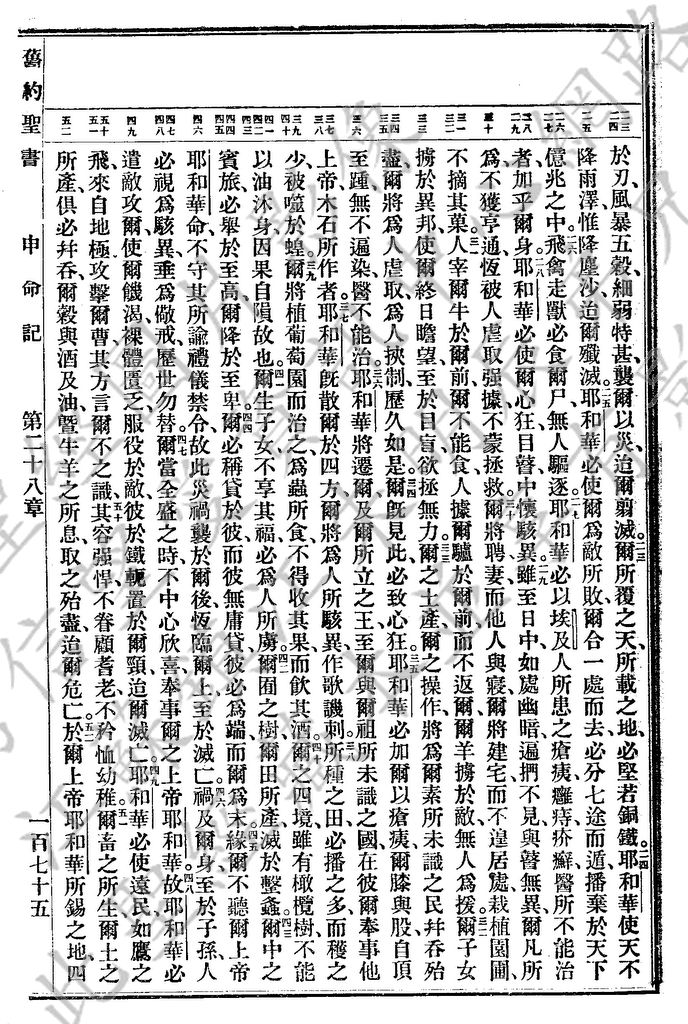 舊約聖書 申命記 第二十八章 一百七十五
於刃風暴五穀細弱特甚襲爾以災迨爾翦滅爾所覆之天所載之地必堅若銅鐵耶和華使天不
降雨澤惟降塵沙迨爾殲滅耶和華必使爾爲敵所敗爾合一處而去必分七途而遁播棄於天下
億兆之中飛禽走獸必食爾尸無人驅逐耶和華必以埃及人所患之瘡痍癰痔疥癬醫所不能治
者加乎爾身耶和華必使爾心狂目瞽中懷駭異雖至日中如處幽暗遍捫不見與瞽無異爾凡所
爲不獲亨通恆被人虐取强據不蒙拯救爾將聘妻而他人與寢爾將建宅而不遑居處栽植園圃
不摘其菓人宰爾牛於爾前爾不能食人據爾驢於爾前而不返爾爾羊擄於敵無人爲援爾子女
擄於異邦使爾終日瞻望至於目盲欲拯無力爾之土產爾之操作將爲爾素所未識之民幷吞殆
盡爾將爲人虐取爲人挾制歷久如是爾旣見此必致心狂耶和華必加爾以瘡痍爾膝與股自頂
至踵無不遍染醫不能治耶和華將遷爾及爾所立之王至爾與爾祖所未識之國在彼爾奉事他
上帝木石所作者耶和華旣散爾於四方爾將爲人所駭異作歌譏刺所種之田必播之多而穫之
少被噬於蝗爾將植葡萄園而治之爲蟲所食不得收其果而飮其酒爾之四境雖有橄欖樹不能
以油沐身因果自隕故也爾生子女不享其福必爲人所虜爾囿之樹爾田所產滅於螫蟊爾中之
賓旅必舉於至高爾降於至卑爾必稱貸於彼而彼無庸貸彼必爲端而爾爲末緣爾不聽爾上帝
耶和華命不守其所諭禮儀禁令故此災禍襲於爾後恆臨爾上至於滅亡禍及爾身至於子孫人
必視爲駭異垂爲儆戒歷世勿替爾當全盛之時不中心欣喜奉事爾之上帝耶和華故耶和華必
遣敵攻爾使爾饑渴裸體匱乏服役於敵彼於鐵軛置於爾頸迨爾滅亡耶和華必使遠民如鷹之
飛來自地極攻擊爾曹其方言爾不之識其容强悍不眷顧耆老不矜恤幼稚爾畜之所生爾土之
所產俱必幷吞爾穀與酒及油曁牛羊之所息取之殆盡迨爾危亡於爾上帝耶和華所錫之地四